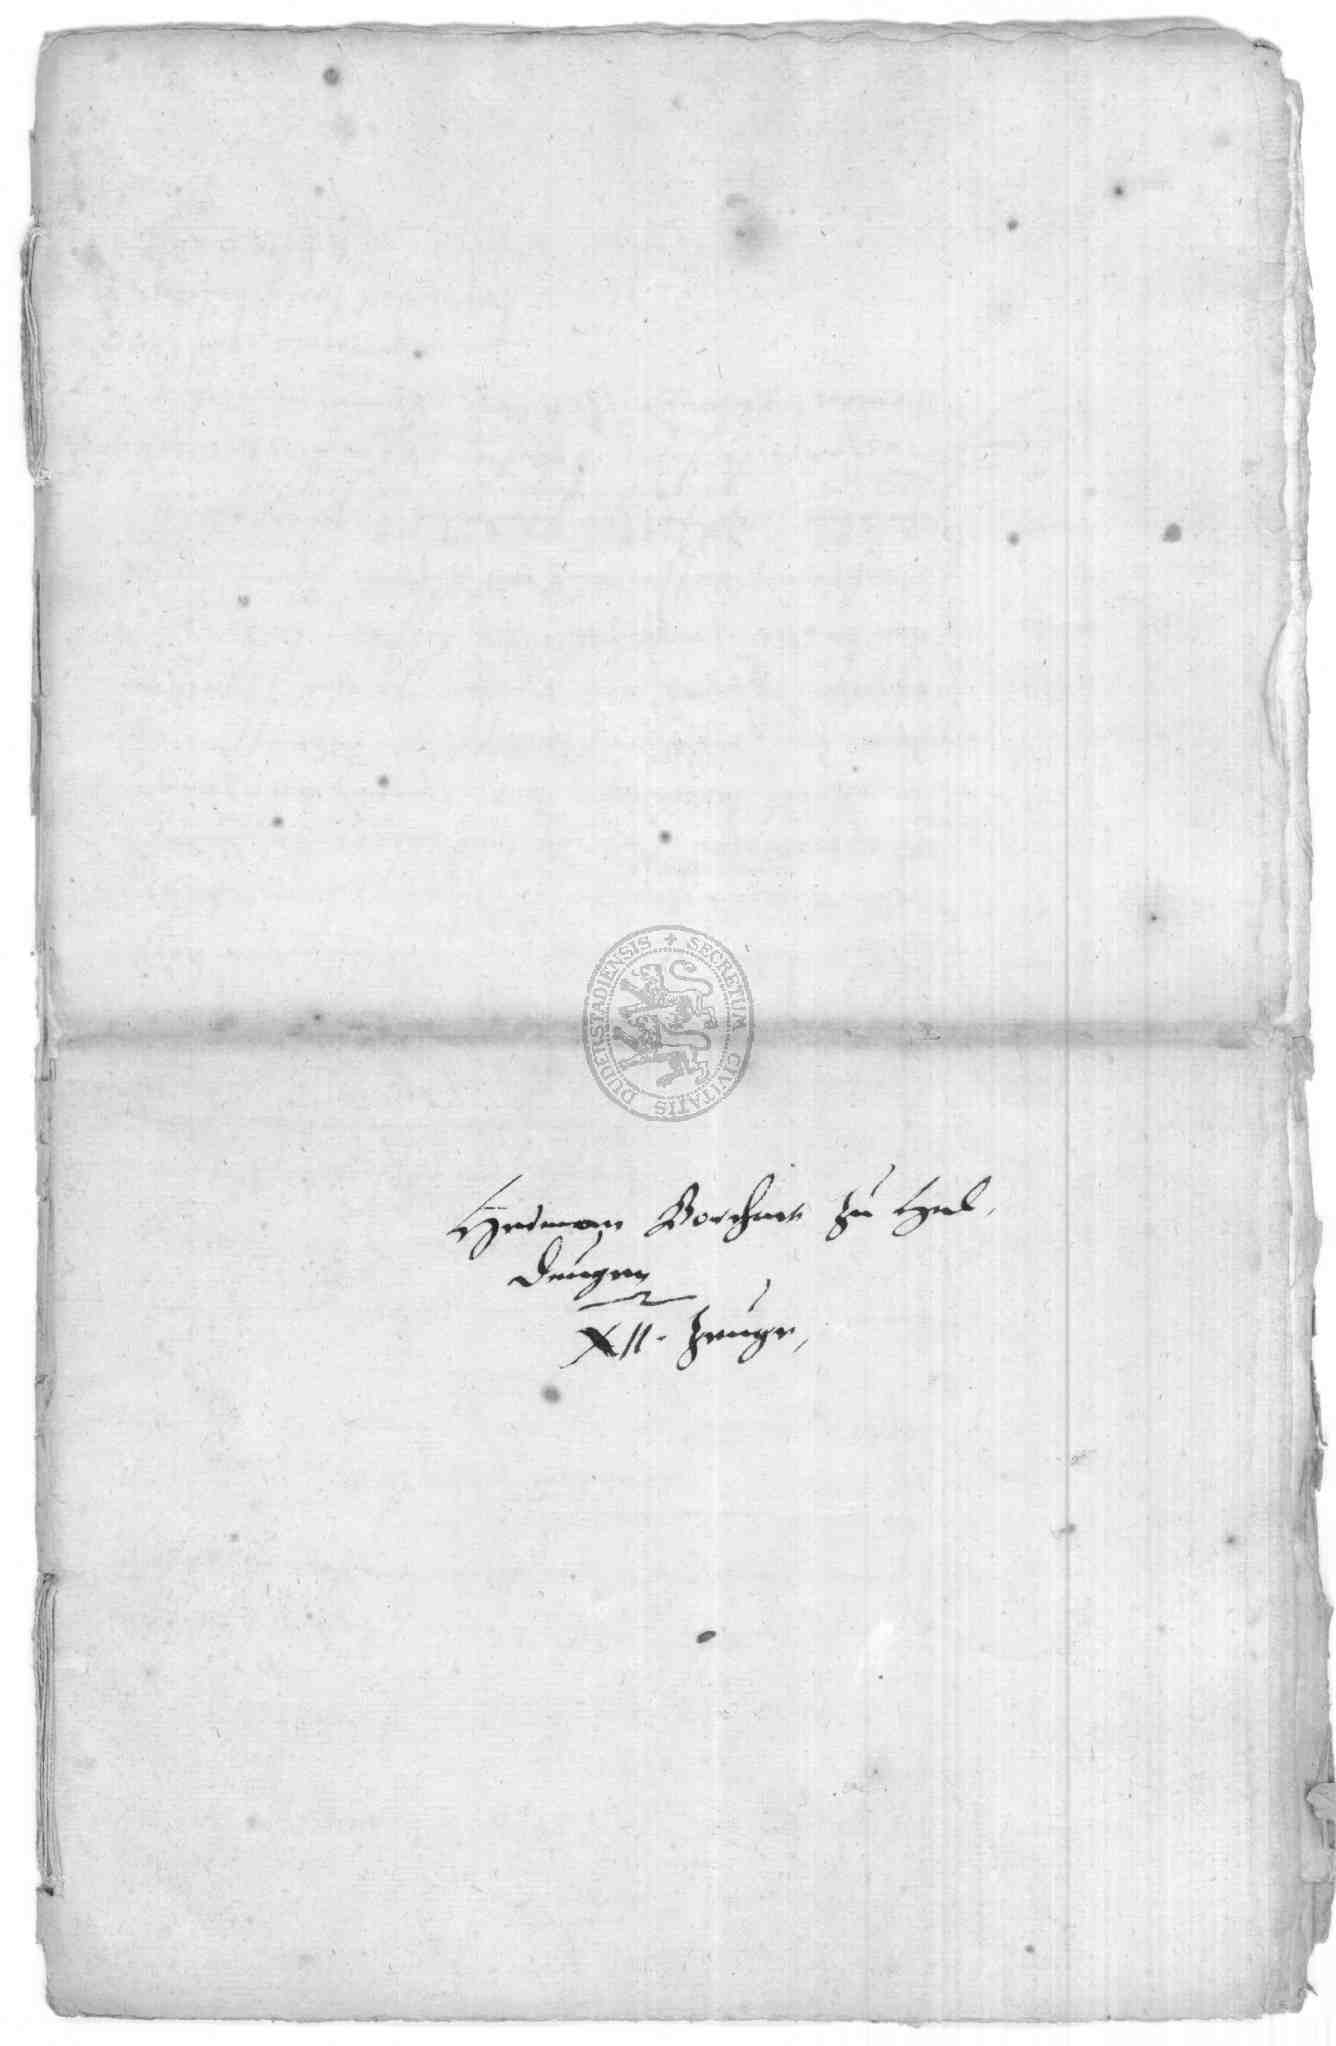 SECRETUM CIVITATIS DUDERSTADIENSIS
Herman Borchart zu Hil,
XII. Zeuge,